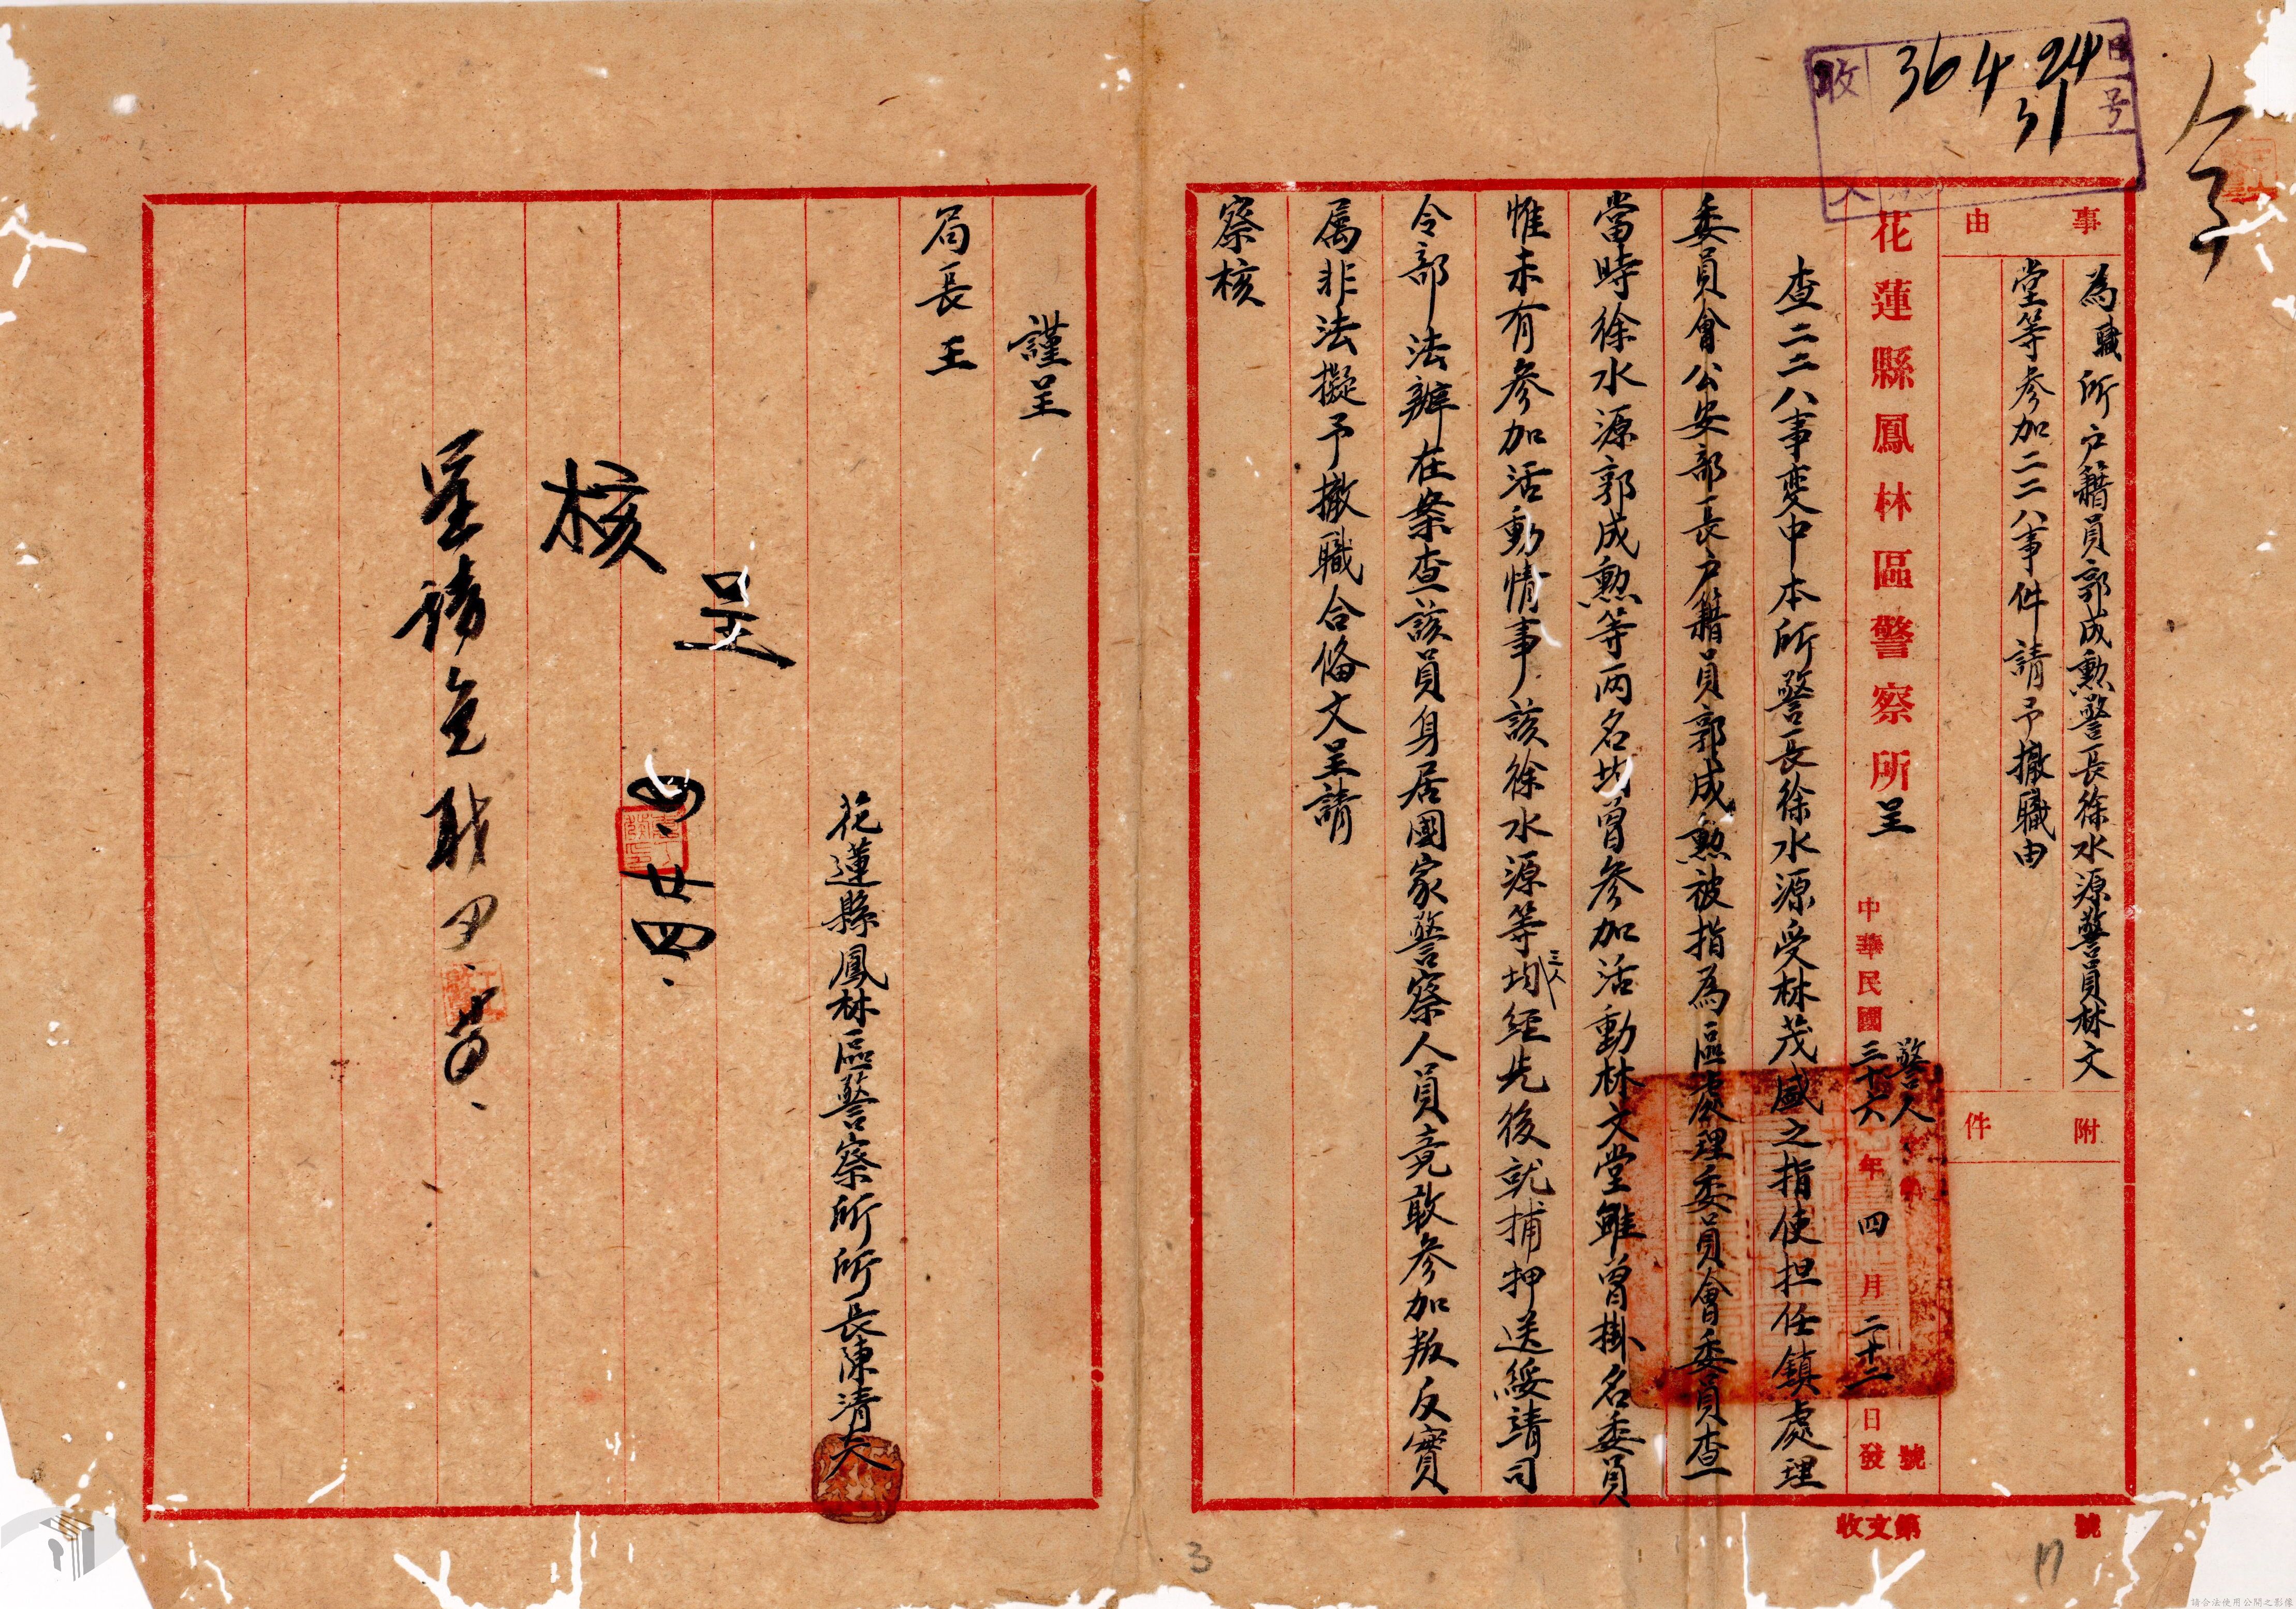 收 日
36 4 24 号
31
文
事由
為職所户籍員郭成勲警長徐水源警員林文
堂等参加二二八事件請予撤職由
附件
花蓮縣鳳林區警察所呈
中華民國三十六年四月二十二日發
警人字第 號
查二二八事变中本所警長徐水源受林茂盛之指使担任鎮處理
委員會公安部長户籍員郭成勲被指為區處理委員會委員查
當時徐水源郭成勲等两名均曾参加活動林文堂雖曾掛名委員
惟未有参加活動情事該徐水源等三人均經先後就捕押送綏靖司
令部法辦在案查該員身居國家警察人員竟敢参加叛反實
属非法擬予撤職合俻文呈請
察核
謹呈
局長王
花蓮縣鳳林區警察所所長陳清夫
呈
核
四、廿四、
收文第 號
3
17
請合法使用公開之影像